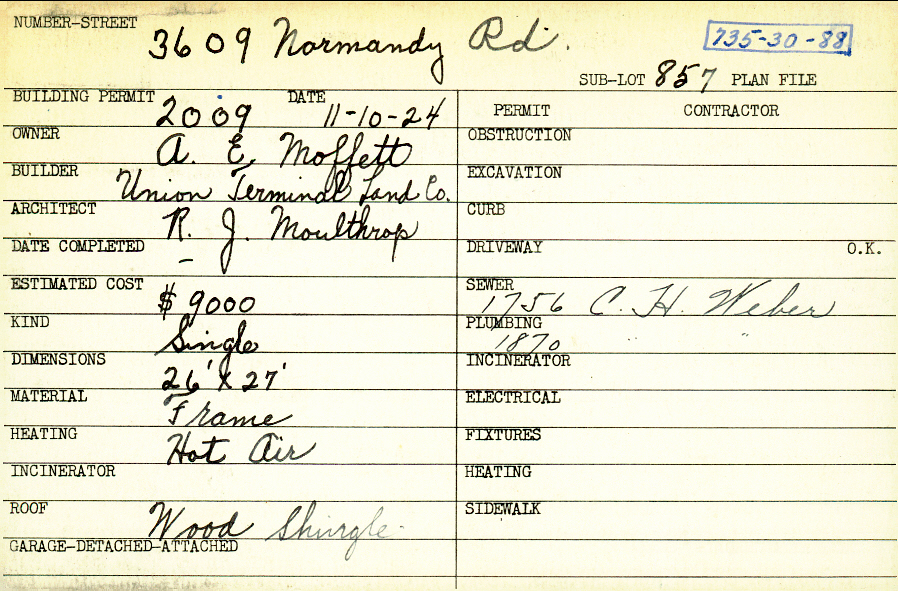 NUMBER-STREET 3609 Normandy Rd. 735-30-88
SUB-LOT 857 PLAN FILE
BUILDING PERMIT 2009 DATE 11-10-24
PERMIT CONTRACTOR
OWNER A. E. Moffett
OBSTRUCTION
BUILDER Union Terminal Land Co.
EXCAVATION
ARCHITECT R. J. Moulthrop
CURB
DATE COMPLETED –
DRIVEWAY O.K.
ESTIMATED COST $ 9000
SEWER 1756 C. H. Weber
KIND Single
PLUMBING 1870 " "
DIMENSIONS 26' x 27'
INCINERATOR
MATERIAL Frame
ELECTRICAL
HEATING Hot Air
FIXTURES
INCINERATOR
HEATING
ROOF Wood Shingle
SIDEWALK
GARAGE-DETACHED-ATTACHED